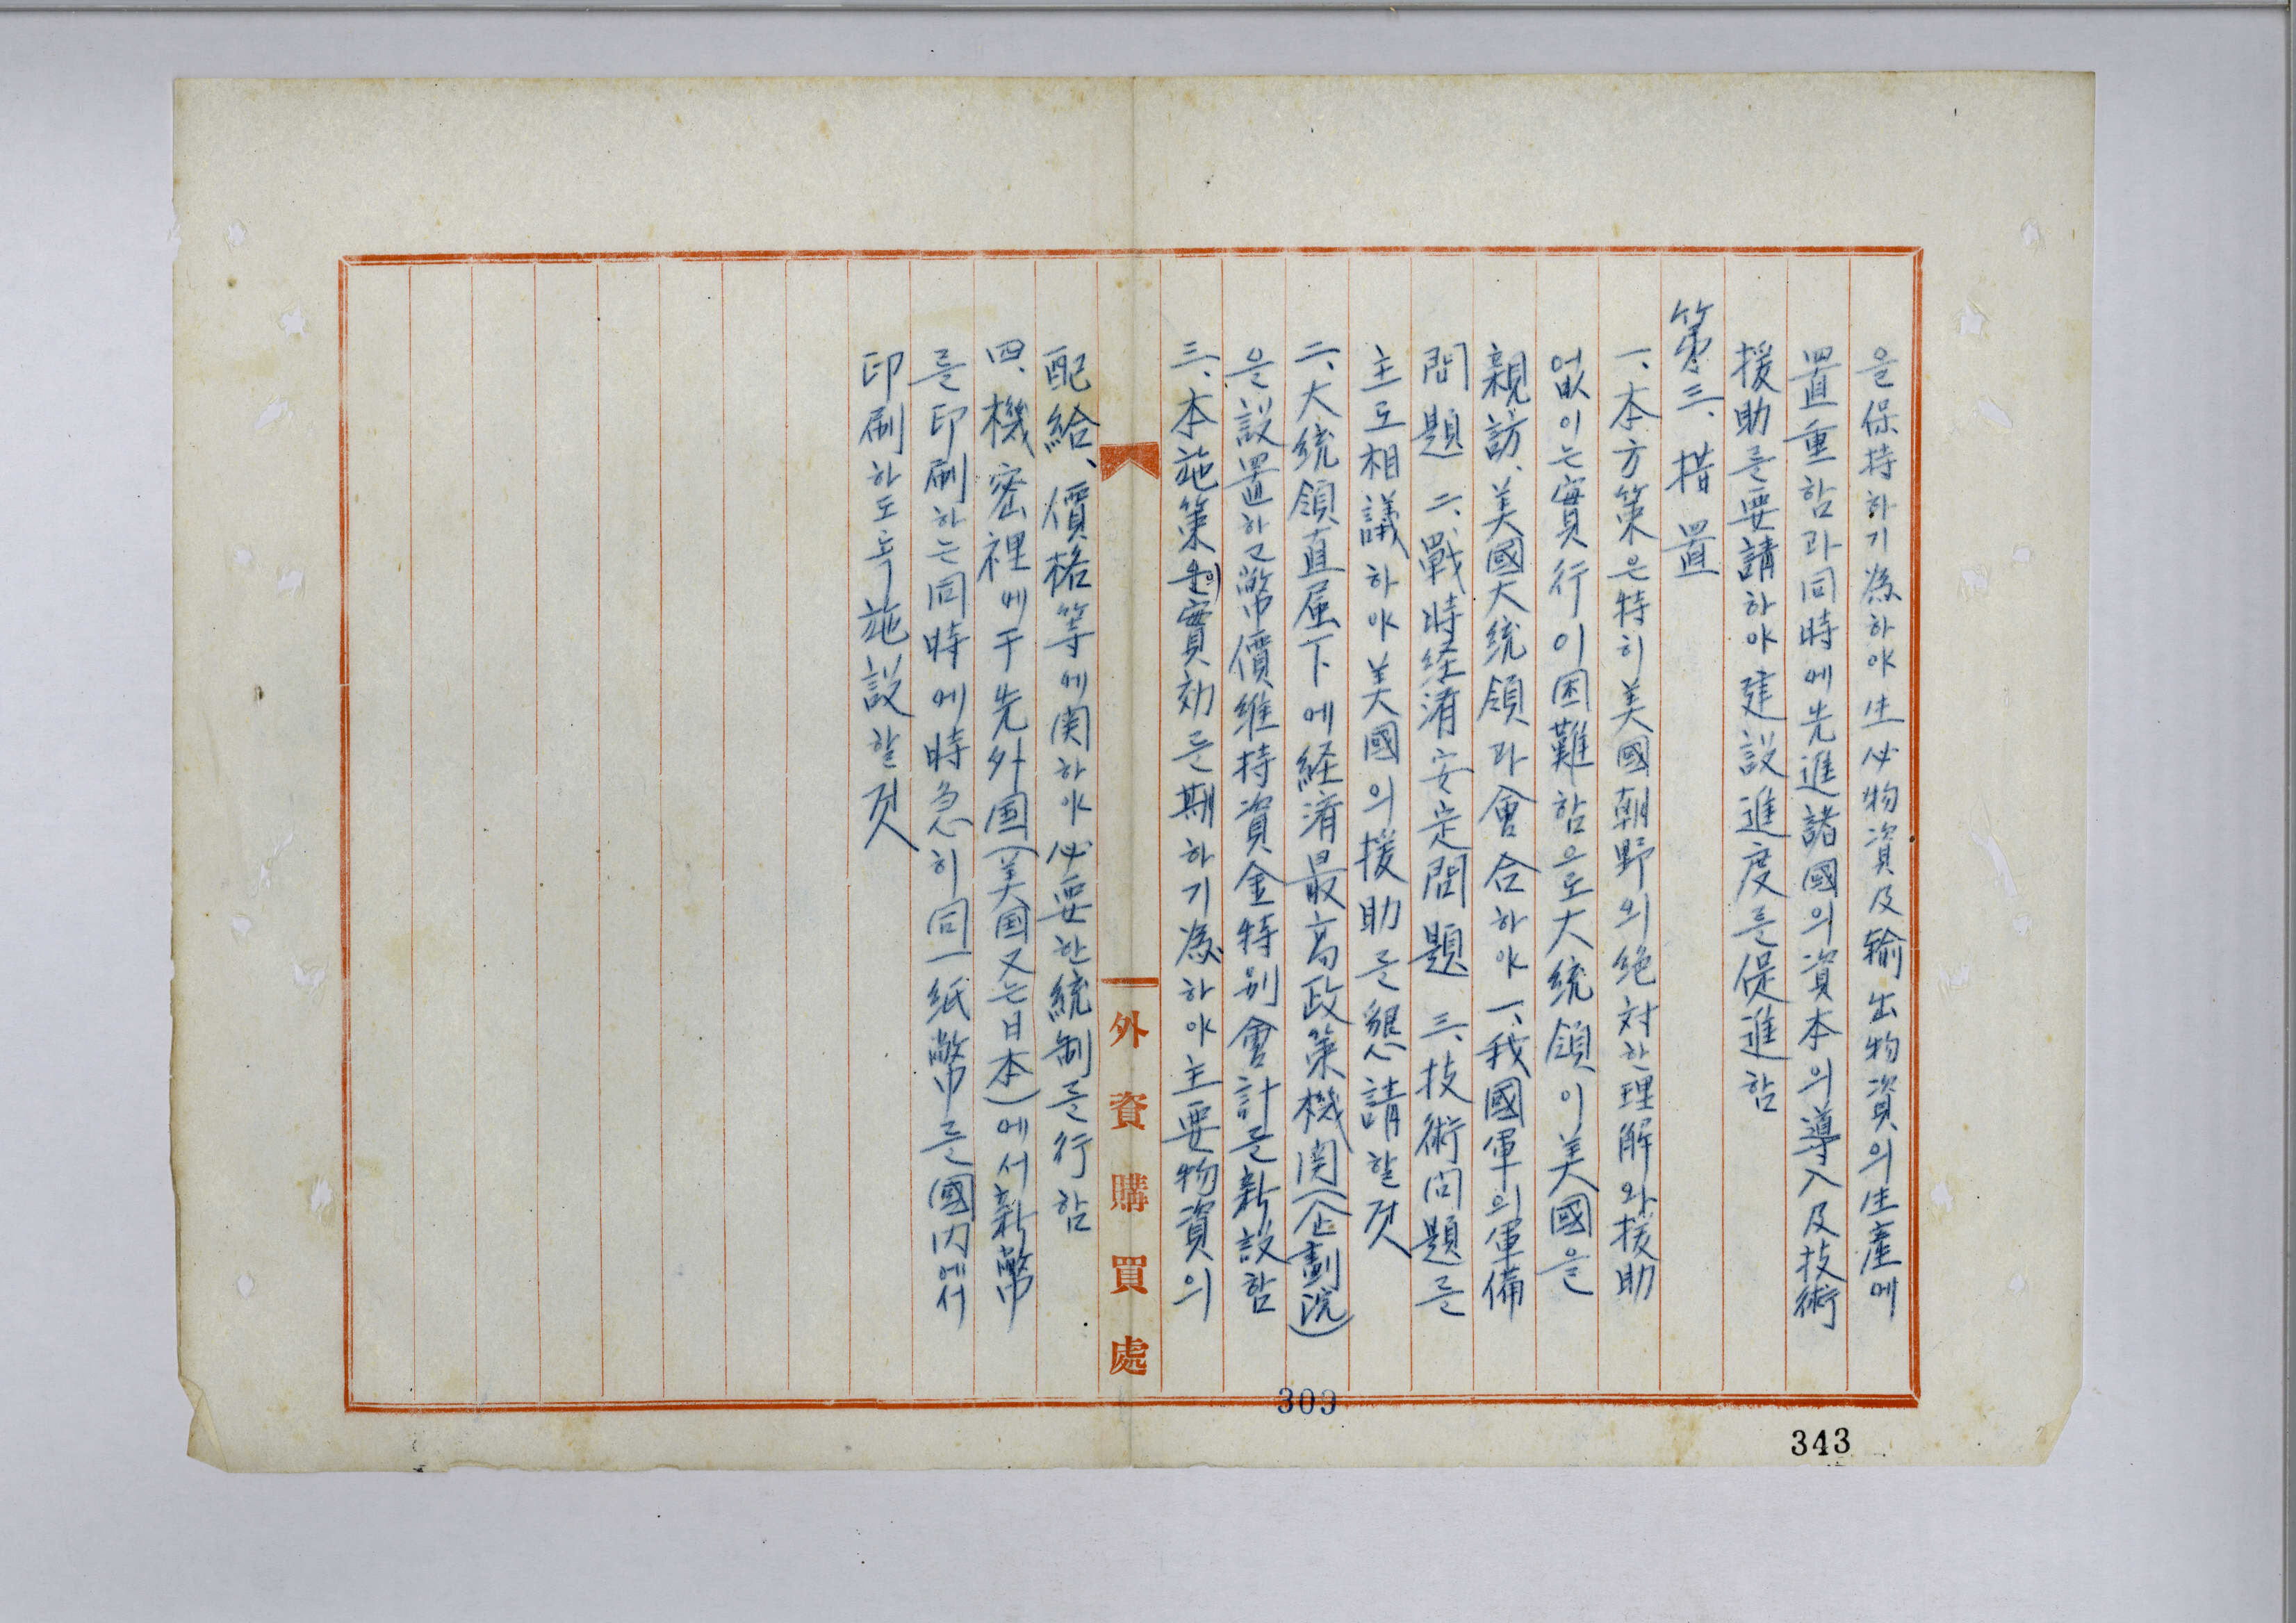 을保持하기爲하야生必物資及輸出物資의生産에
置重함과同時에先進諸國의資本의導入及技術
援助를要請하야建設進度를促進함
第三、措置
一、本方策은特히美國朝野의絶対한理解와援助
없이는實行이困難함으로大統領이美國을
親訪、美國大統領과會合하야一、我國軍의軍備
問題 二、戰時経済安定問題 三、技術問題를
主로相議하야美國의援助를懇請할것
二、大統領直属下에経済最高政策機関(企劃院)
을設置하고幣價維持資金特別會計를新設함
三、本施策의實効를期하기爲하야主要物資의
外資購買處
配給、價格等에関하야必要한統制를行함
四、機密裡에于先外国(美国又는日本)에서新幣
를印刷하는同時에時急히同一紙幣를國内에서
印刷하도록施設할것
309
343